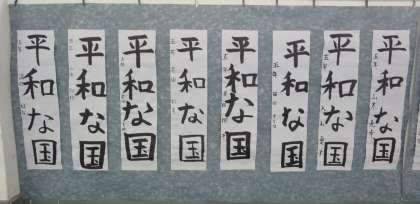 平和な国
平和な国
平和な国
平和な国
平和な国
平和な国
平和な国
平和な国